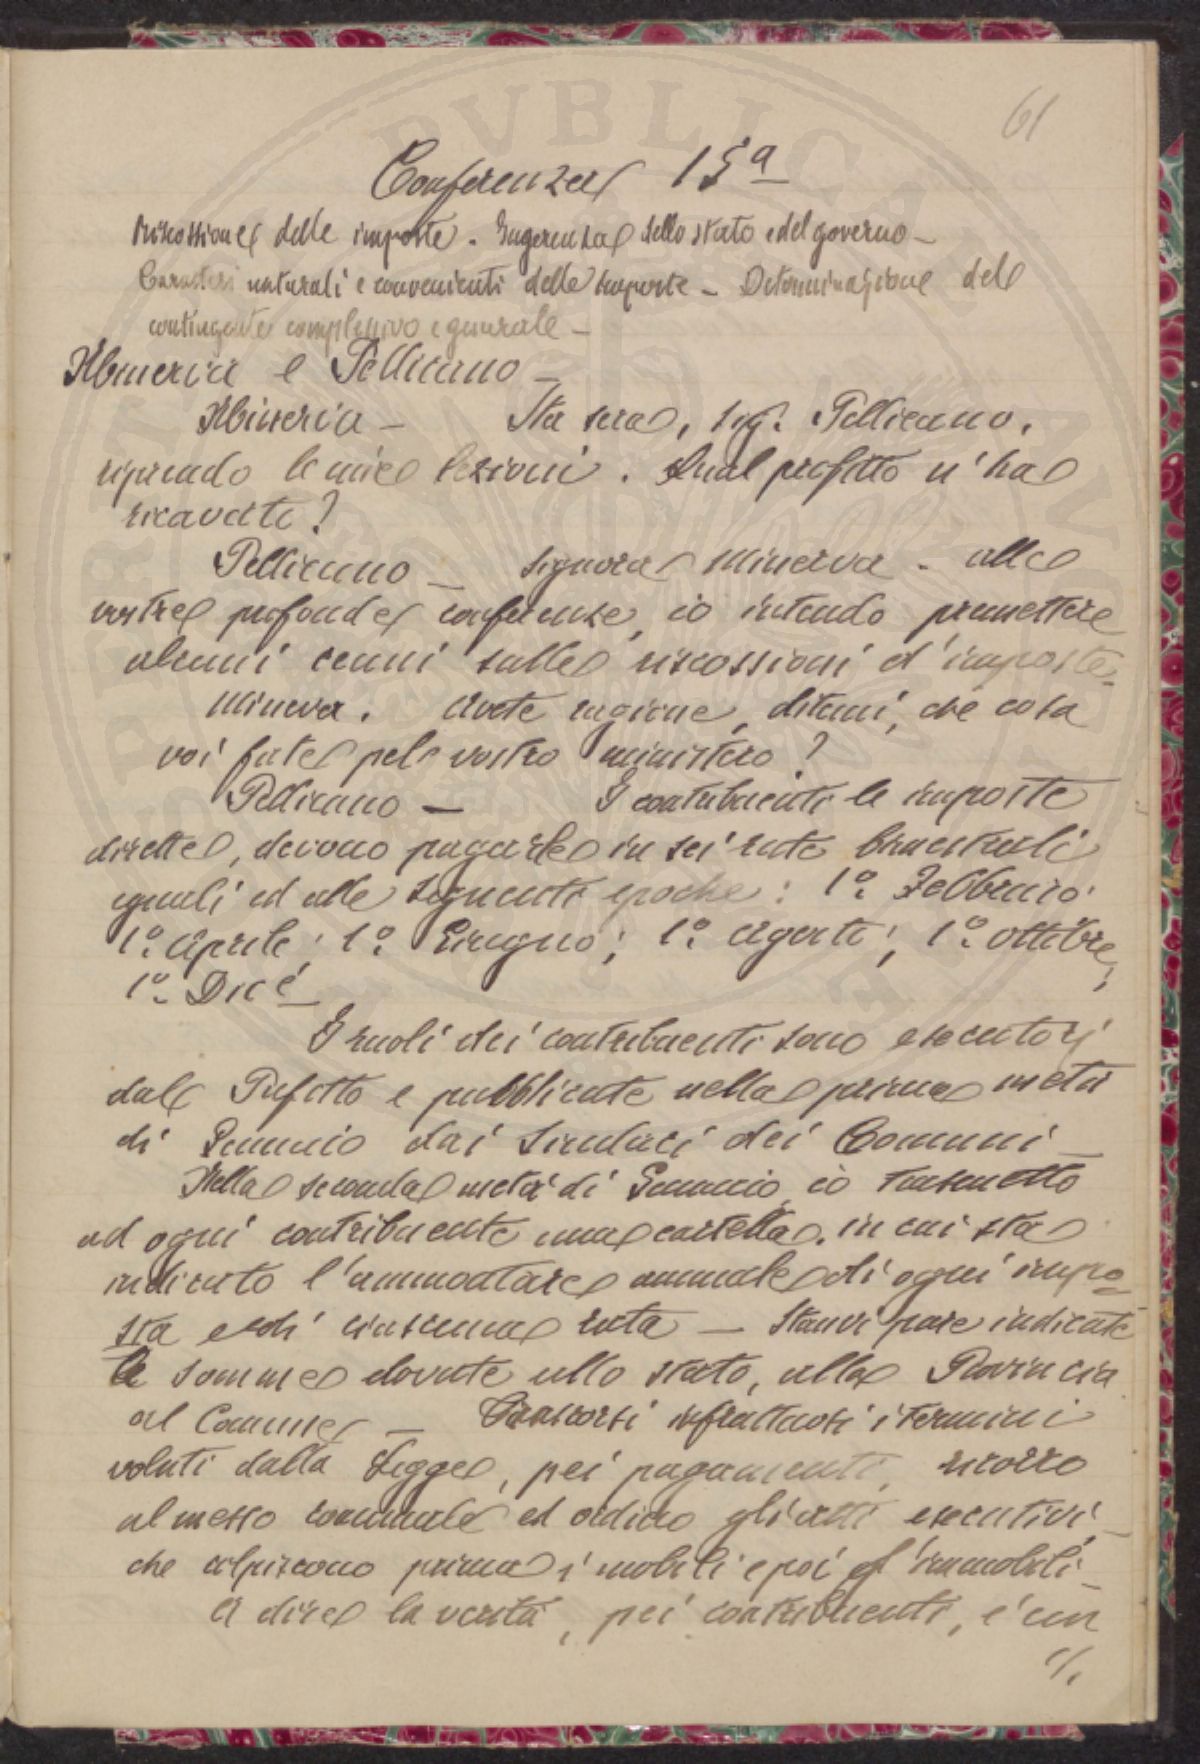 61
Conferenza 15ª
Riscossione delle imposte. Ingerenza dello stato e del governo -
Caratteri naturali e convenienti delle imposte - Determinazione del
contingente complessivo e generale -
Minerva e Pellicano -
Minerva - Sta sera, sig. Pellicano,
riprendo le mie lezioni. Qual profitto n'ha
ricavate?
Pellicano - Signora Minerva. alle
vostre profonde conferenze, io intendo premettere
alcuni cenni sulle riscossioni d'imposte.
Minerva. Avete ragione, ditemi, che cosa
voi fate pel vostro ministero?
Pellicano - I contribuenti le imposte
dirette, devono pagarle in sei rate bimestrali
eguali ed alle seguenti epoche: 1º Febbraio
1º Aprile; 1º Giugno; 1º Agosto; 1º ottobre;
1º Dicé
I ruoli dei contribuenti sono esecutori
dal Prefetto e pubblicate nella prima metà
di Gennaio dai Sindaci dei Comuni -
Nella seconda metà di Gennaio io trasmetto
ad ogni contribuente una cartella, in cui sta
indicato l'ammontare annuale di ogni impo=
sta e di ciascuna rata - Stanvi pure indicate
le somme dovute allo stato, alla Provincia
al Comune - Trascorsi infruttuosi i termini
voluti dalla Legge, pei pagamenti, ricorro
al messo comunale ed ordino gli atti esecutivi,
che colpiscono prima i mobili e poi gl'immobili -
A dire la verità, pei contribuenti, é un
./.